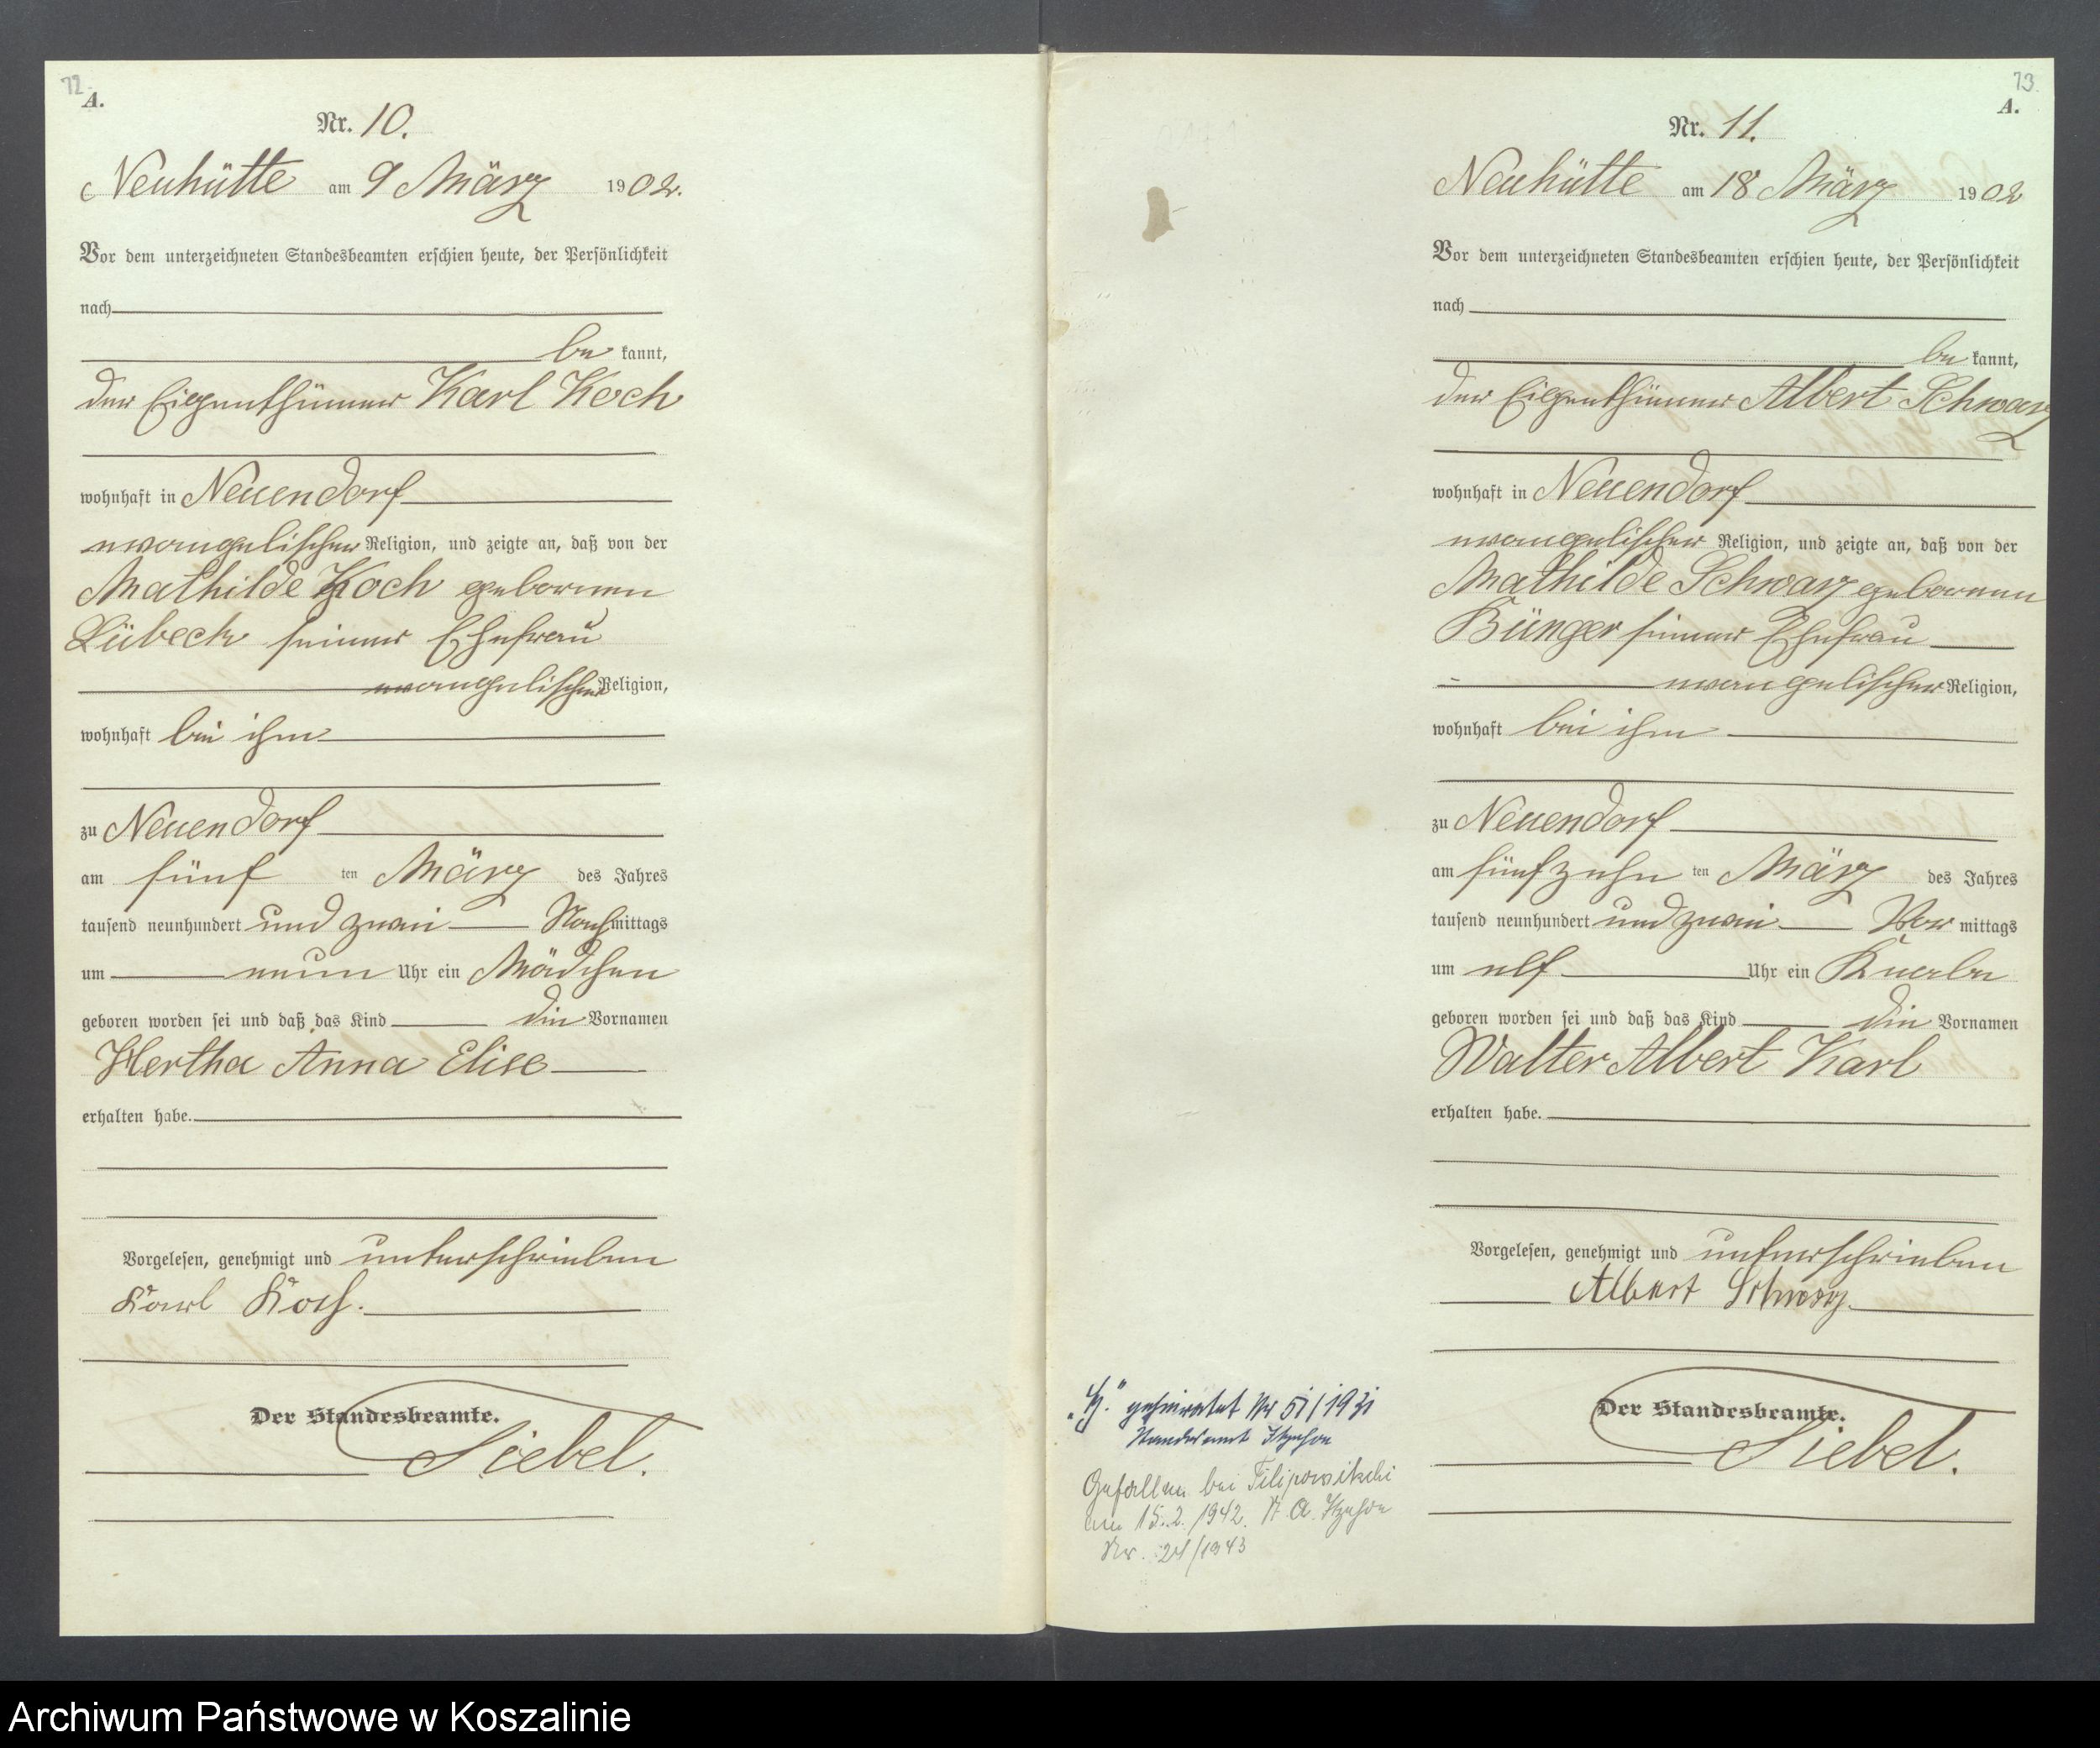 72
A.
Nr. 10.
Neuhütte am 9 März 1902.
Vor dem unterzeichneten Standesbeamten erschien heute, der Persönlichkeit
nach
be kannt,
der Eigenthümer Karl Koch
wohnhaft in Neuendorf
evangelischer Religion, und zeigte an, daß von der
Mathilde Koch geborenen
Lübeck seiner Ehefrau
evangelischer Religion,
wohnhaft bei ihm
zu Neuendorf
am fünf ten März des Jahres
tausend neunhundert und zwei Nachmittags
um neun Uhr ein Mädchen
geboren worden sei und daß das Kind die Vornamen
Hertha Anna Elise
erhalten habe.
Vorgelesen, genehmigt und unterschrieben
Karl Koch.
Der Standesbeamte.
Siebel.
73
A.
Nr. 11.
Neuhütte am 18 März 1902
Vor dem unterzeichneten Standesbeamten erschien heute, der Persönlichkeit
nach
be kannt,
der Eigenthümer Albert Schwarz
wohnhaft in Neuendorf
evangelischer Religion, und zeigte an, daß von der
Mathilde Schwarz geborenen
Bünger seiner Ehefrau
evangelischer Religion,
wohnhaft bei ihm
zu Neuendorf
am fünfzehn ten März des Jahres
tausend neunhundert und zwei Vor mittags
um elf Uhr ein Knabe
geboren worden sei und daß das Kind die Vornamen
Walter Albert Karl
erhalten habe.
Vorgelesen, genehmigt und unterschrieben
Albert Schwarz.
Der Standesbeamte.
Siebel.
geheiratet Nr 51/1931
Standesamt Itzehoe
Gefallen bei Filipowitschi
am 15.2.1942. St. A. Itzehoe
Nr. 21/1943
Archiwum Państwowe w Koszalinie